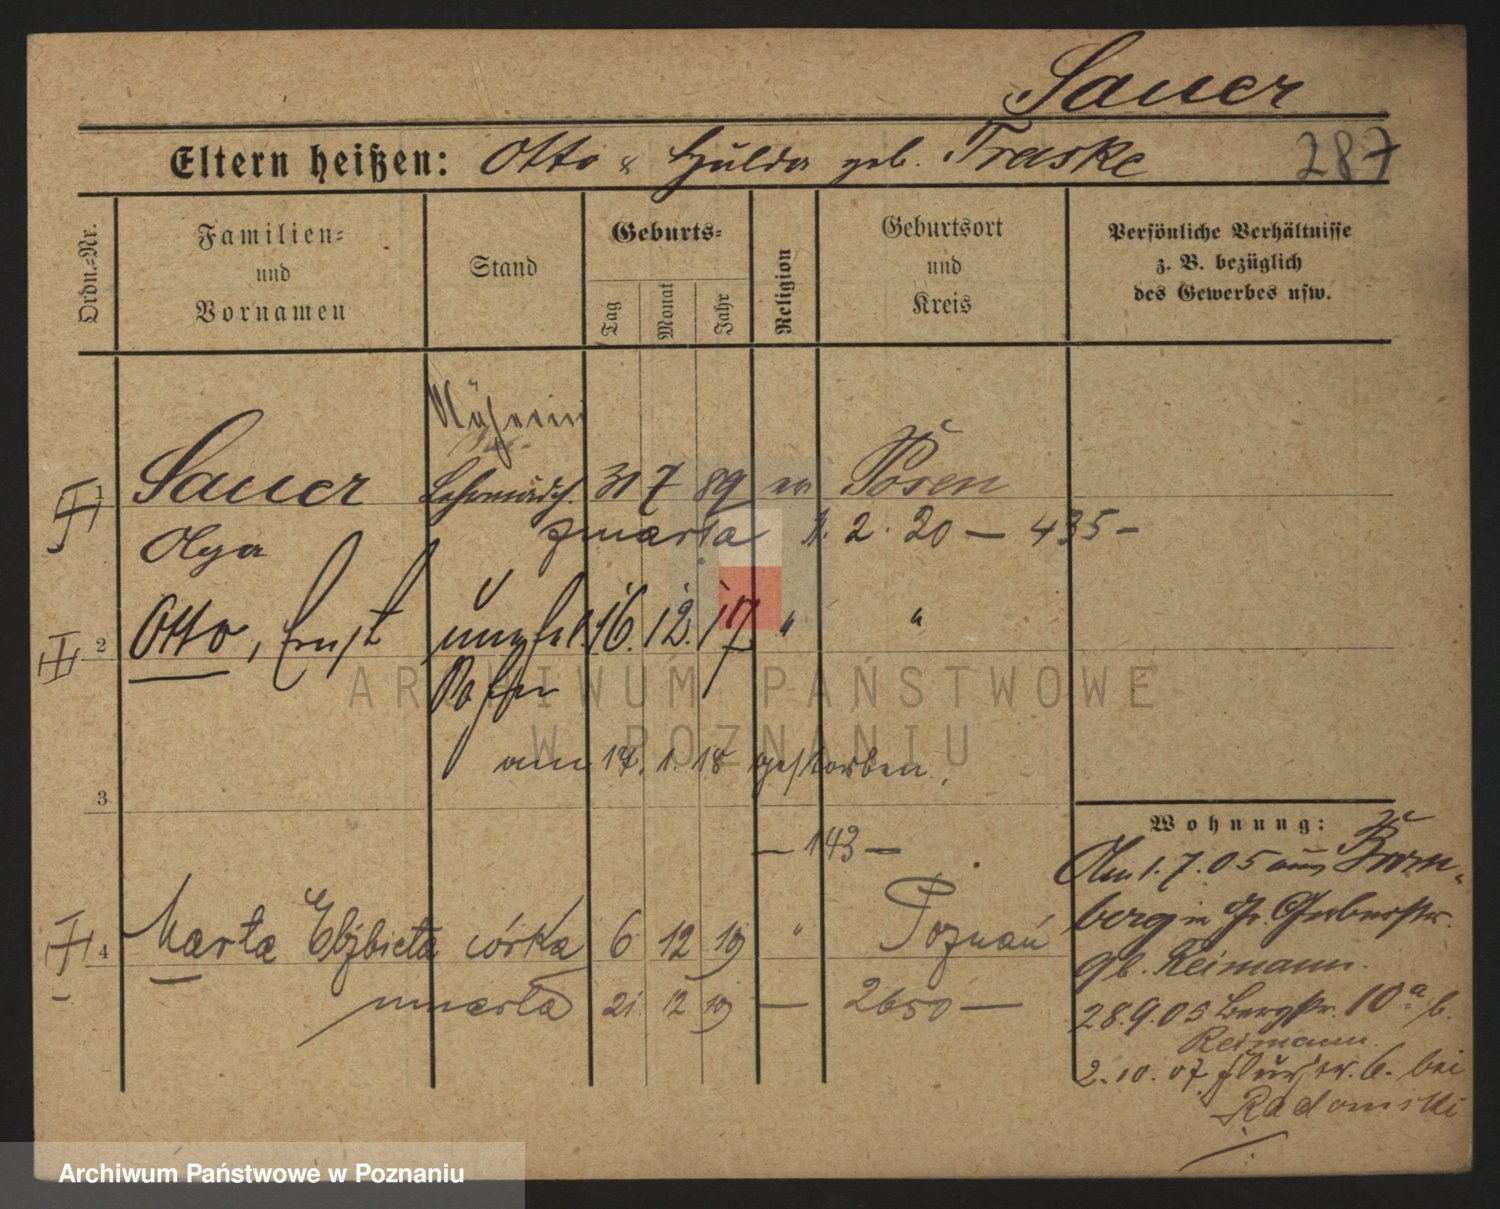 Sauer
Eltern heißen: Otto & Hulda geb. Traske 287
Ordn.-Nr.
Familien-
und
Vornamen
Stand
Geburts-
Tag
Monat
Jahr
Religion
Geburtsort
und
Kreis
Persönliche Verhältnisse
z. B. bezüglich
des Gewerbes usw.
Näherin
Sauer Lehrmädch. 31 7 89 ev Posen
Olga zmarła 1. 2. 20 — 435 —
2 Otto, Ernst unehel. 16. 12. 17 " "
am 17. 1. 18 gestorben.
3
— 143 —
4 Marta Elżbieta córka 6 12 19 " Poznań
umarła 21 12 19 — 2650 —
Wohnung:
Am 1. 7. 05 aus Brom-
berg in Gr. Gerberstr.
gb. Reimann.
28. 9. 05 Bergstr. 10 a b.
Reimann.
2. 10. 07 6. bei
Radomski
ARCHIWUM PAŃSTWOWE
W POZNANIU
Archiwum Państwowe w Poznaniu